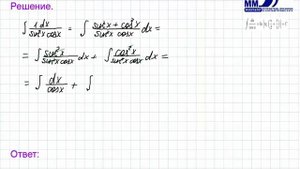 Решение.
∫ 1dx / sin²x cosx = ∫ sin²x + cos²x / sin²x cosx dx =
= ∫ sin²x / sin²x cosx dx + ∫ cos²x / sin²x cosx dx =
= ∫ dx / cosx + ∫
Ответ: